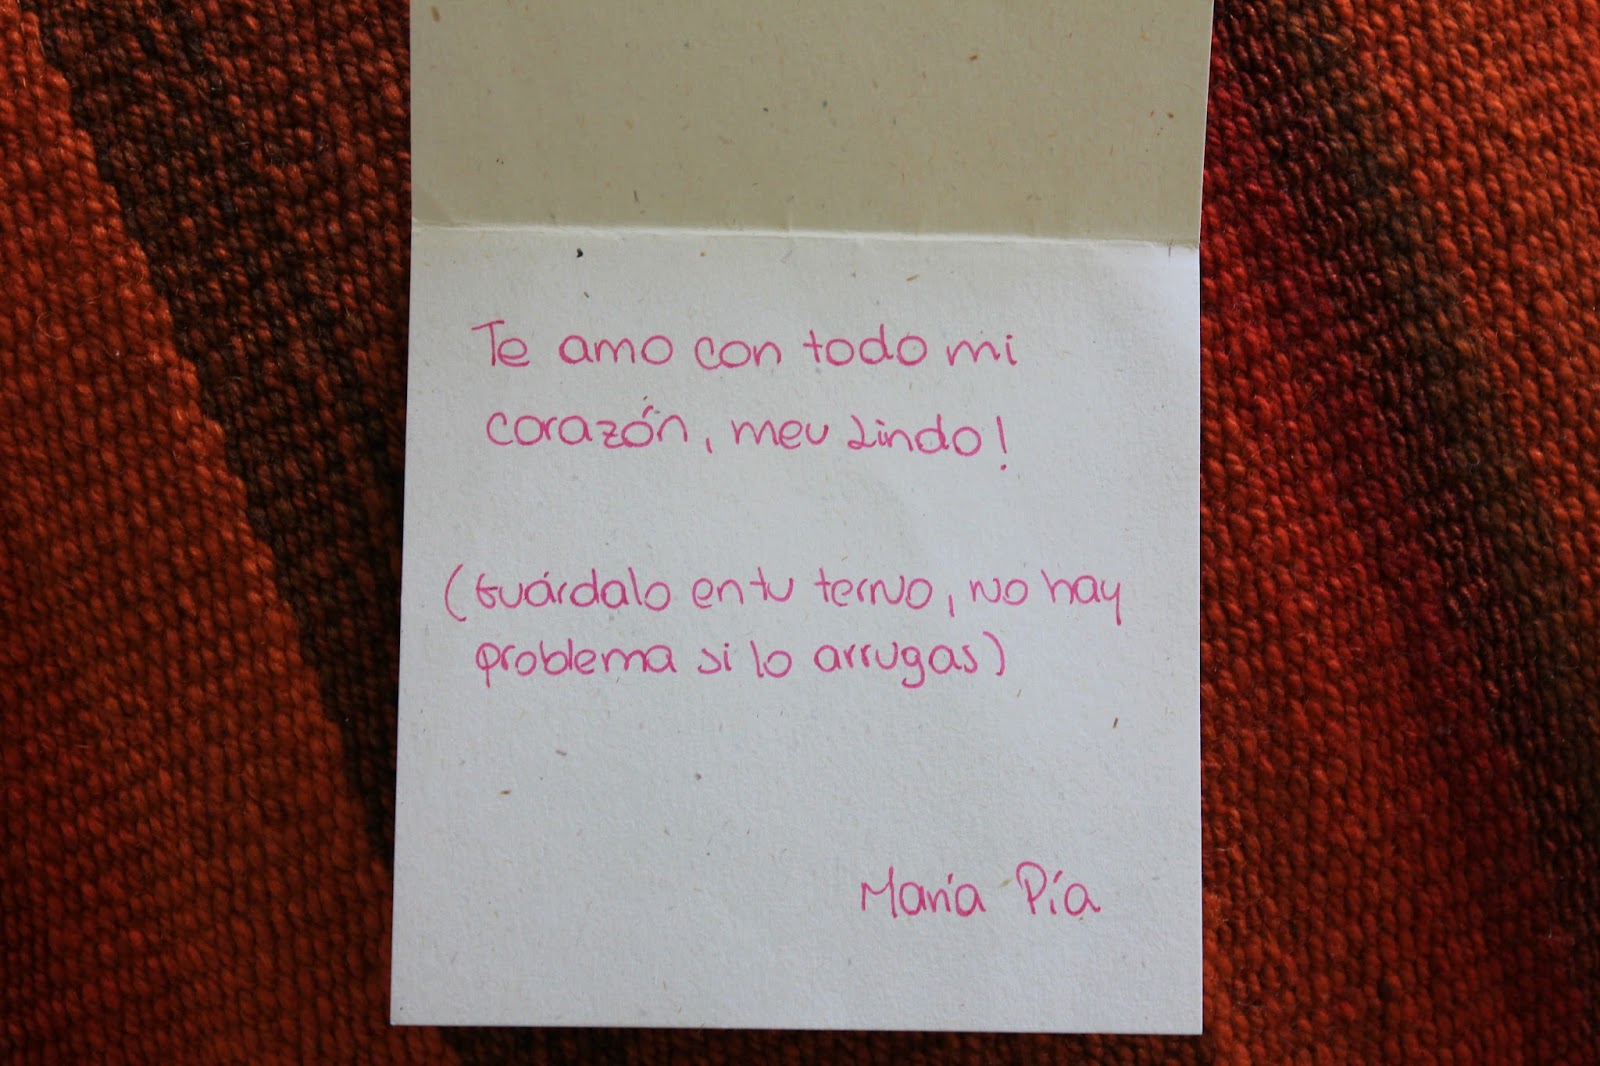 Te amo con todo mi
corazón, meu Lindo!
(Guárdalo en tu terno, no hay
problema si lo arrugas)
María Pía